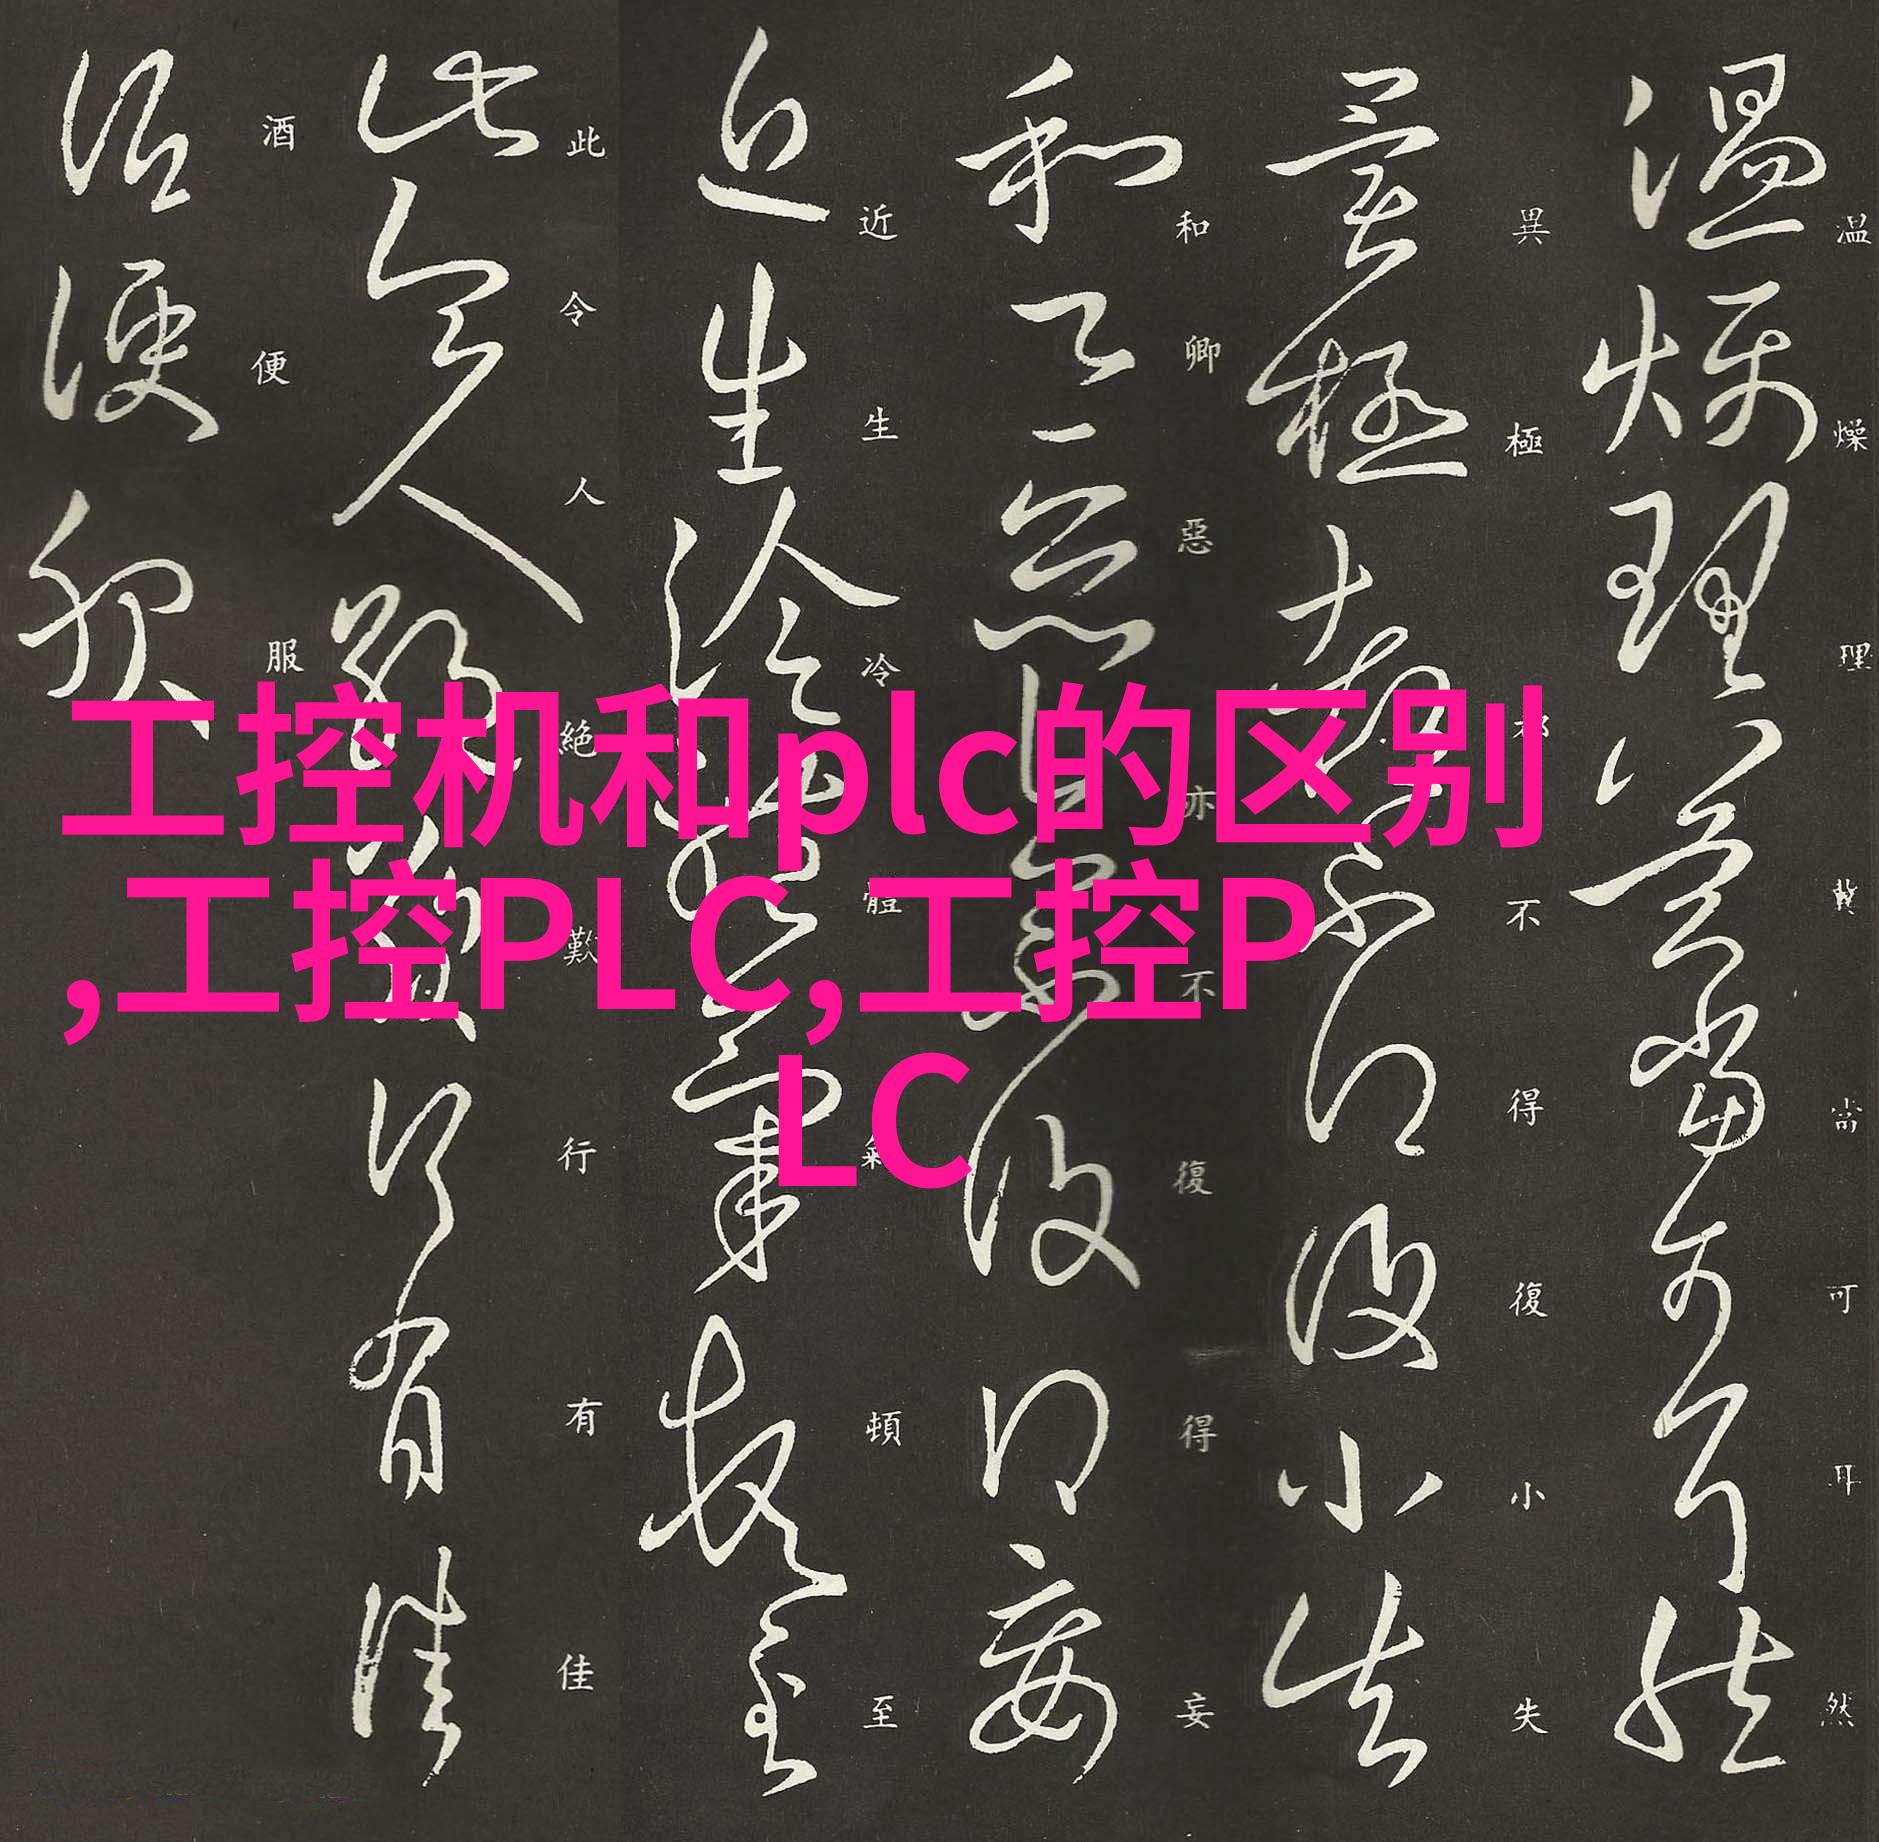 工控机和plc的区别
,工控PLC,工控P
LC
温燥理冀當可耳然
異極都不得復小失
和卿惡亦不復得妄
近生冷體氣頓至
此令人絶歎行有佳
酒便服